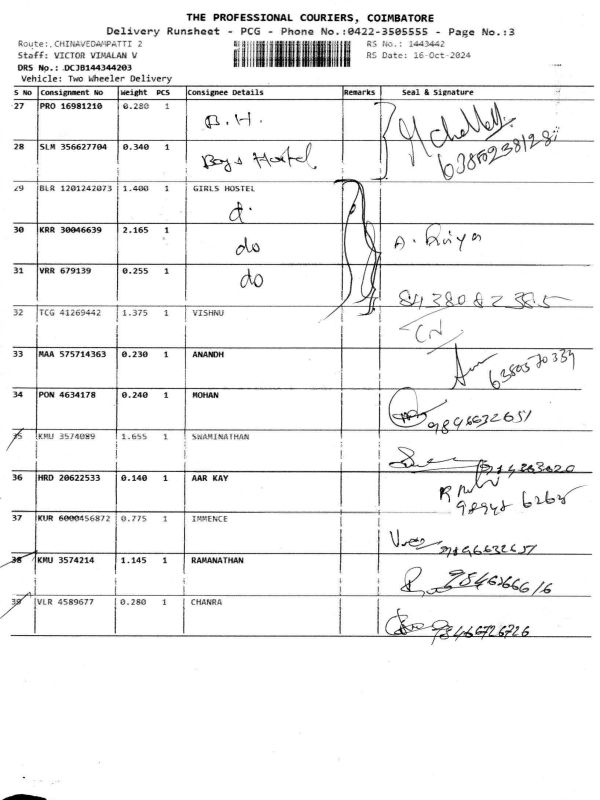 THE PROFESSIONAL COURIERS, COIMBATORE
Delivery Runsheet - PCG - Phone No.:0422-3505555 - Page No.:3
Route: CHINAVEDAMPATTI 2 RS No.: 1443442
Staff: VICTOR VIMALAN V RS Date: 16-Oct-2024
DRS No.: DCJB144344203
Vehicle: Two Wheeler Delivery
S No Consignment No Weight PCS Consignee Details Remarks Seal & Signature
27 PRO 16981210 0.280 1
B.H.
28 SLM 356627704 0.340 1
Boys Hostel
29 BLR 1201242073 1.400 1 GIRLS HOSTEL
30 KRR 30046639 2.165 1
do
31 VRR 679139 0.255 1
do
32 TCG 41269442 1.375 1 VISHNU
33 MAA 575714363 0.230 1 ANANDH
34 PON 4634178 0.240 1 MOHAN
9846632651
35 KMU 3574089 1.655 1 SWAMINATHAN
36 HRD 20622533 0.140 1 AAR KAY
37 KUR 6000456872 0.775 1 IMMENCE
38 KMU 3574214 1.145 1 RAMANATHAN
39 VLR 4589677 0.280 1 CHANRA
9846726726